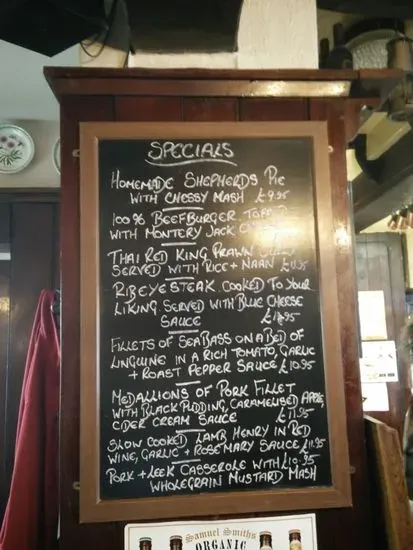 SPECIALS
HOMEMADE SHEPHERDS PIE
WITH CHESSY MASH £9.95
100% BEEFBURGER TOPPED
WITH MONTERY JACK
THAI RED KING PRAWN CURRY
SERVED WITH RICE + NAAN £11.95
RIBEYE STEAK COOKED TO YOUR
LIKING. SERVED WITH BLUE CHEESE
SAUCE
FILLETS OF SEABASS ON A BED OF
LINGUINE IN A RICH TOMATO, GARLIC
+ ROAST PEPPER SAUCE £10.95
MEDALLIONS OF PORK FILLET
WITH BLACK PUDDING, CARAMELISED APPLE
CIDER CREAM SAUCE £11.95
SLOW COOKED LAMB HENRY IN RED
WINE, GARLIC + ROSEMARY SAUCE £11.95
PORK + LEEK CASSEROLE WITH £10.95
WHOLEGRAIN MUSTARD MASH
Samuel Smith's
ORGANIC